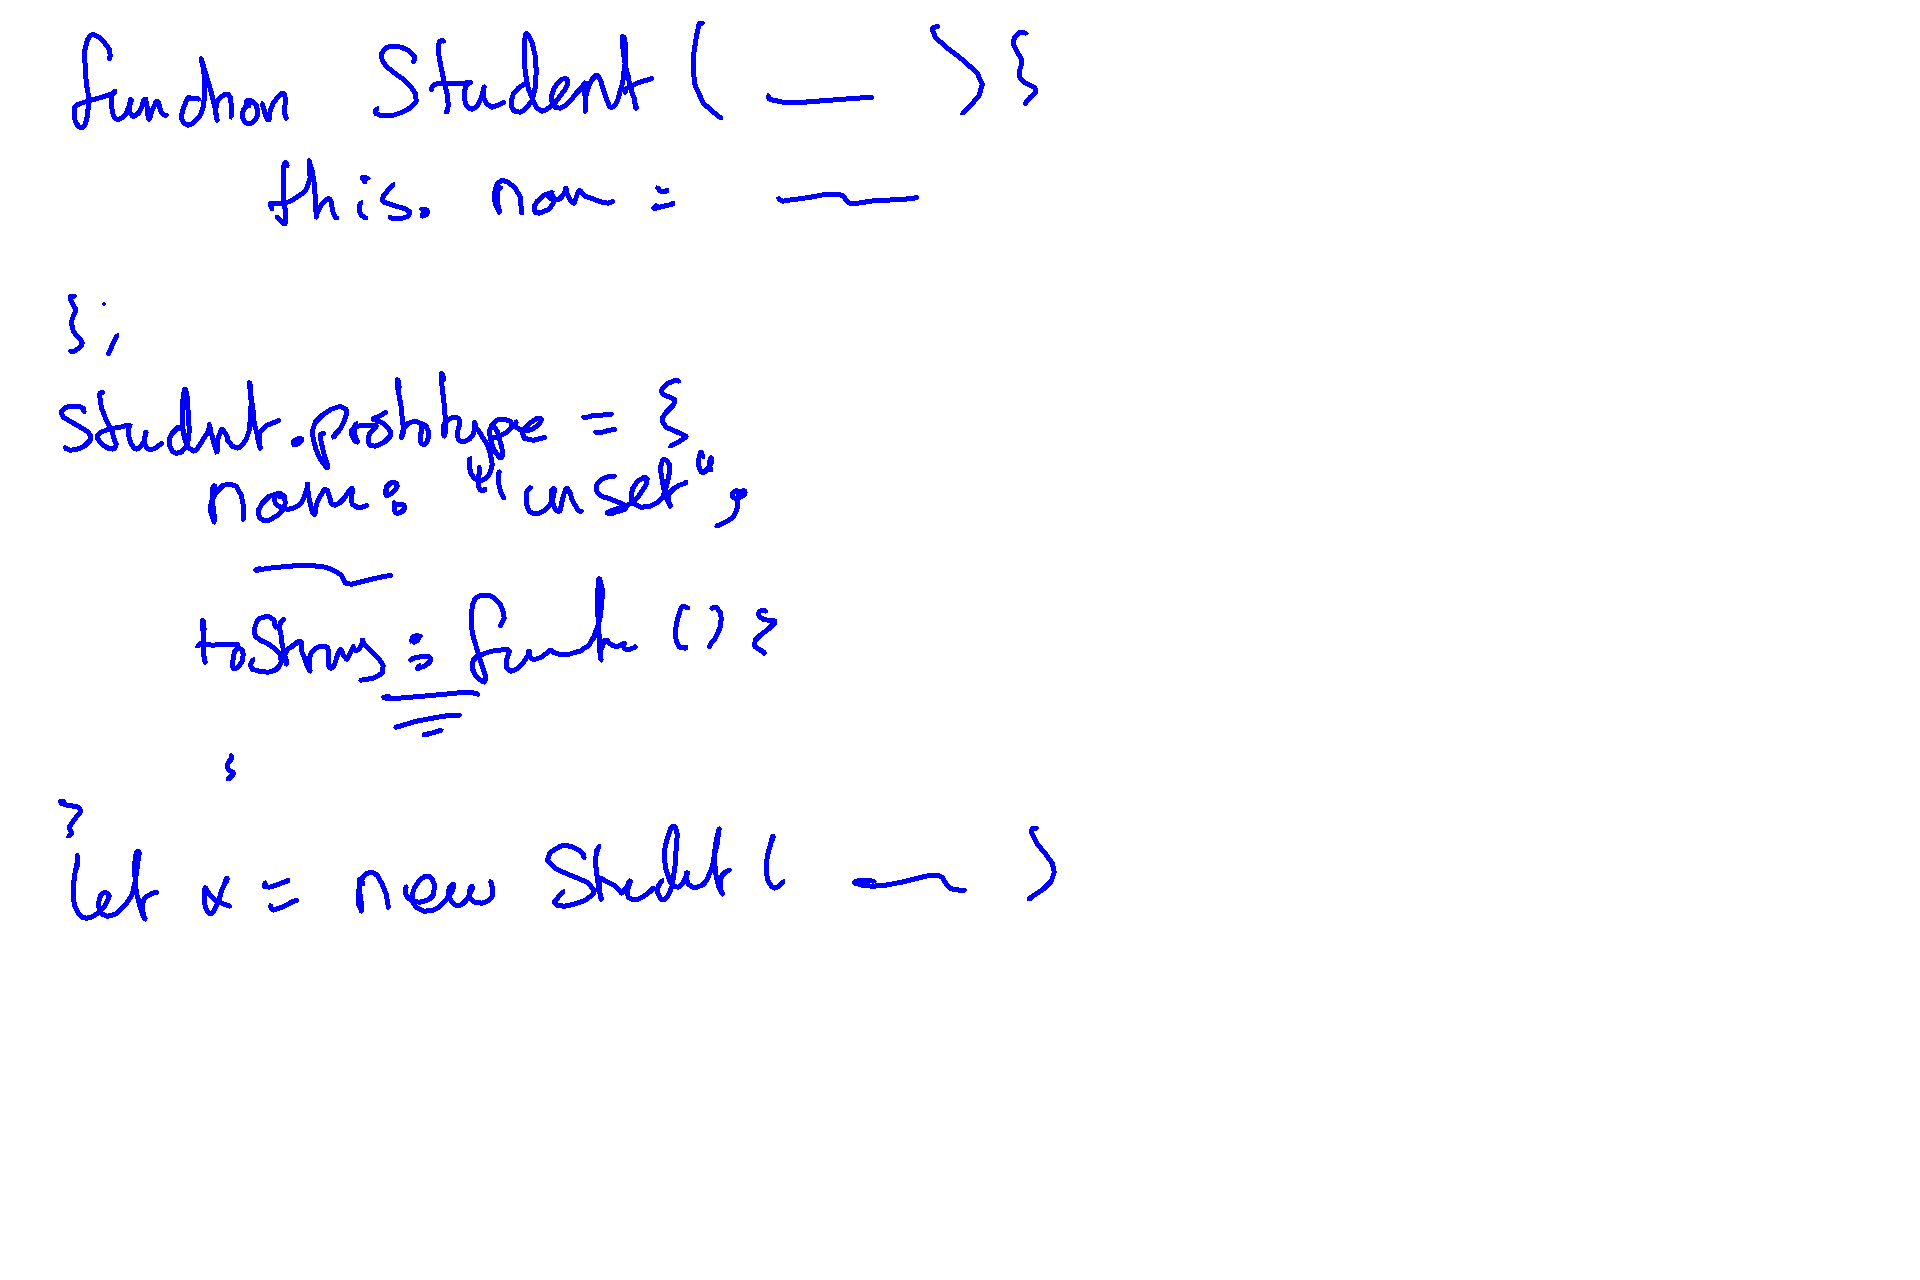 function Student ( — ) {
this. nom = —
};
Student.prototype = {
nom: "unset",
—
toString: funct () {
}
}
let x = new Studet ( — )